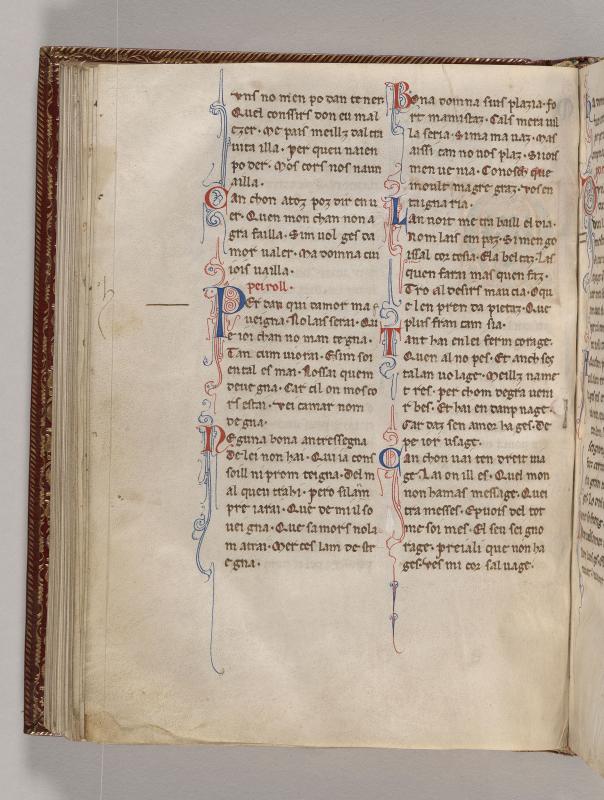 uns no men po dan tener
Quel conssirs don eu mal
tzer. Me pais meillz dal tra
uita illa. per queu naien
po der. Mos cors nos naun
ailla.
Can chon atoz poz dir en u
er. Quen mon chan non a
gra failla. Sim uol ges da
mor ualer. Ma domna cui
iois uailla.
peiroll.
Per dan qui damor ma
ueigna. Nolais serai. Qu
e ioi chan no man tegna.
Tan cum uiurai. Esim soi
en tal es mai. Nossai quem
deue gna. Car cil on mos co
rs estai. vei camar nom
de gna.
Neguna bona antressegna
De lei non hai. Qui ia cons
soill ni prom teigna. Del m
al quen trahi. pero silam
pre iarai. Que de mil so
uei gna. Que sa mors nola
m atrai. Mer ces lam de str
egna.
Bona domna suis plazia. fo
rt mamistaz. Cals mera uil
la seria. Si ma ma uaz. Mas
aissi can no uos plaz. Si iois
men ue nia. Conosch que
moult magre graz. vos en
taigna ria.
Lan noit me tra baill el dia.
Nom lais em paz. Simen go
issal cor tesia. Ela beltaz. Las
quen farai mas quen faz.
Tro al desirs maucia. Oqu
e len pren da pietaz. Que
plus fran cam sia.
Tant hai en lei ferm corage.
Quen al no pes. Et anch ses
talan uo lage. Meillz name
t res. per chom degra ueni
r bes. Et hai en danp nage.
Car daz sen amor ha ges. De
pe ior usage.
Can chon uai ten dreit uia
ge. Lai on ill es. Quel mon
non hamas message. Quei
tra messes. Epuois del tot
me soi mes. El seu sei gno
rage. preiali que non ha
ges. Ves mi cor sal uage.